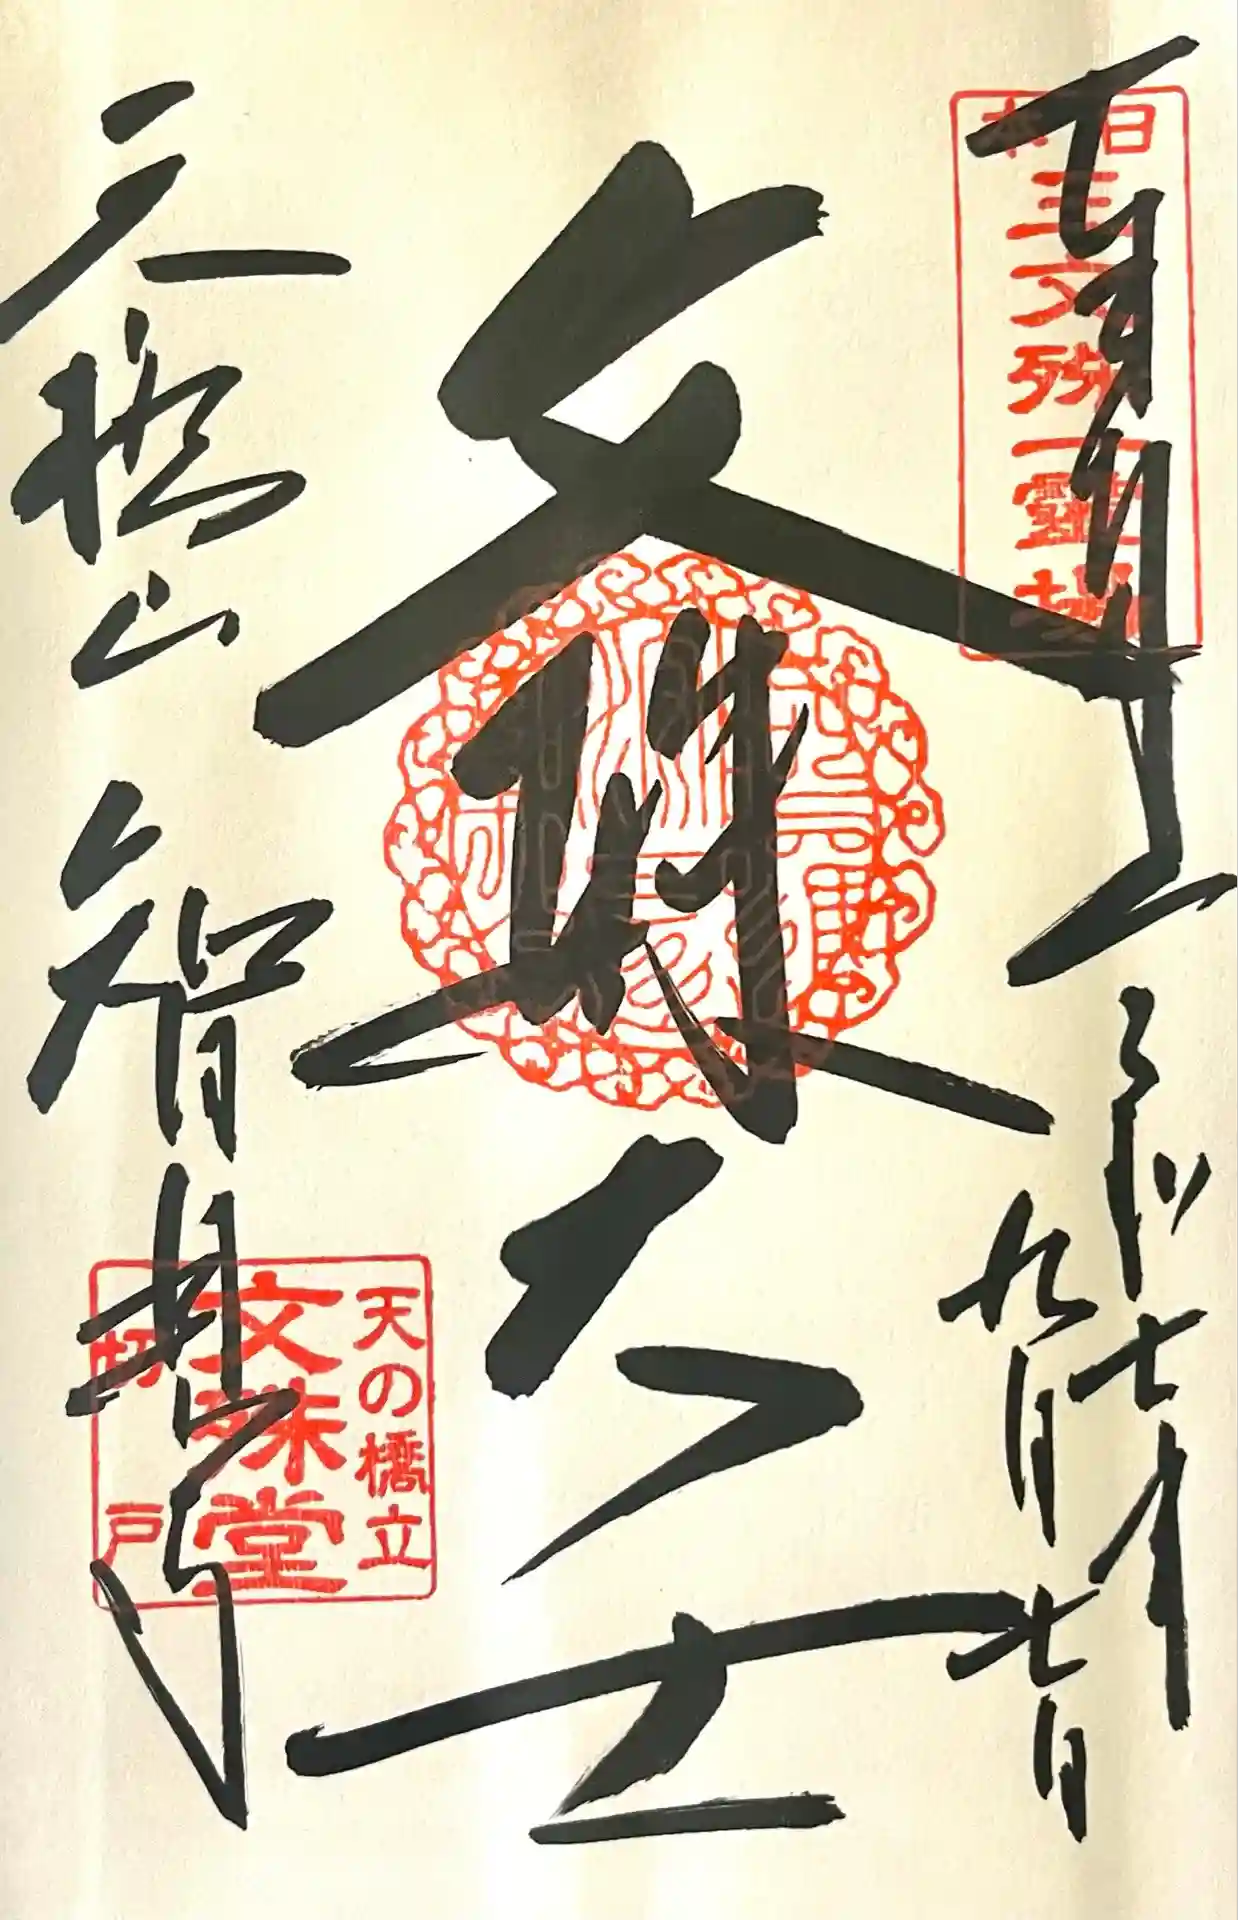 日本
三文殊一靈場
令和七年
九月七日
文殊大士
天橋山 智恩寺
天の橋立
文殊堂
切戸